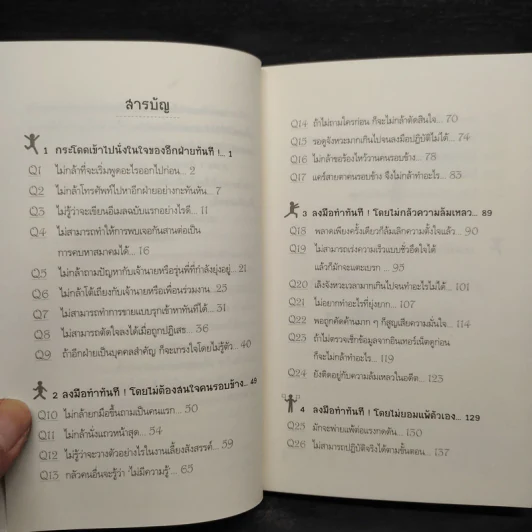 สารบัญ
1 กระโดดเข้าไปนั่งในใจของอีกฝ่ายทันที !... 1
Q1 ไม่กล้าที่จะเริ่มพูดอะไรออกไปก่อน... 2
Q2 ไม่กล้าโทรศัพท์ไปหาอีกฝ่ายอย่างกะทันหัน... 7
Q3 ไม่รู้ว่าจะเขียนอีเมลฉบับแรกอย่างไรดี... 11
Q4 ไม่สามารถทำให้การพบเจอกันสานต่อเป็น
การคบหาสมาคมได้... 16
Q5 ไม่กล้าถามปัญหากับเจ้านายหรือรุ่นพี่ที่กำลังยุ่งอยู่... 21
Q6 ไม่กล้าโต้เถียงกับเจ้านายหรือเพื่อนร่วมงาน... 25
Q7 ไม่สามารถทำการขายแบบรุกเข้าหาทันทีได้... 31
Q8 ไม่สามารถตัดใจลงได้เมื่อถูกปฏิเสธ... 36
Q9 ถ้าอีกฝ่ายเป็นบุคคลสำคัญ ก็จะเกร็งใจโดยไม่รู้ตัว... 40
2 ลงมือทำทันที ! โดยไม่ต้องสนใจคนรอบข้าง... 49
Q10 ไม่กล้ายกมือขึ้นถามเป็นคนแรก... 50
Q11 ไม่กล้านั่งแถวหน้าสุด... 54
Q12 ไม่รู้ว่าจะวางตัวอย่างไรในงานเลี้ยงสังสรรค์... 59
Q13 กลัวคนอื่นจะรู้ว่า 'ไม่มีความรู้'... 65
Q14 ถ้าไม่ถามใครก่อน ก็จะไม่กล้าตัดสินใจ... 70
Q15 รอดูจังหวะมากเกินไปจนลงมือปฏิบัติไม่ได้... 74
Q16 ไม่กล้าขอร้องไหว้วานคนรอบข้าง... 78
Q17 แคร์สายตาคนรอบข้าง จึงไม่กล้าทำอะไร... 83
3 ลงมือทำทันที ! โดยไม่กลัวความล้มเหลว... 89
Q18 พลาดเพียงครั้งเดียวก็ล้มเลิกความตั้งใจแล้ว... 90
Q19 ไม่สามารถเร่งความเร็วแบบชั่วอึดใจได้
แล้วก็มักจะแตะเบรก ... 95
Q20 เล็งจังหวะเวลามากเกินไปจนทำอะไรไม่ได้... 101
Q21 ไม่อยากทำอะไรที่ยุ่งยาก... 107
Q22 พอถูกคัดค้านมาก ๆ ก็สูญเสียความมั่นใจ... 114
Q23 ถ้าไม่ตรวจเช็กข้อมูลจากอินเทอร์เน็ตดูก่อน
ก็จะไม่กล้าทำอะไร... 119
Q24 ยังติดอยู่กับความล้มเหลวในอดีต... 123
4 ลงมือทำทันที ! โดยไม่ยอมแพ้ตัวเอง... 129
Q25 มักจะพ่ายแพ้ต่อแรงกดดัน... 130
Q26 ไม่สามารถปฏิบัติจริงได้ตามขั้นตอน... 137